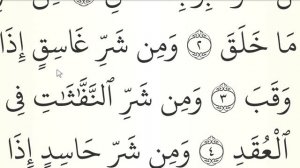 مَا خَلَقَ ٢ وَمِن شَرِّ غَاسِقٍ إِذَا
وَقَبَ ٣ وَمِن شَرِّ ٱلنَّفَّـٰثَـٰتِ فِى
ٱلْعُقَدِ ٤ وَمِن شَرِّ حَاسِدٍ إِذَا